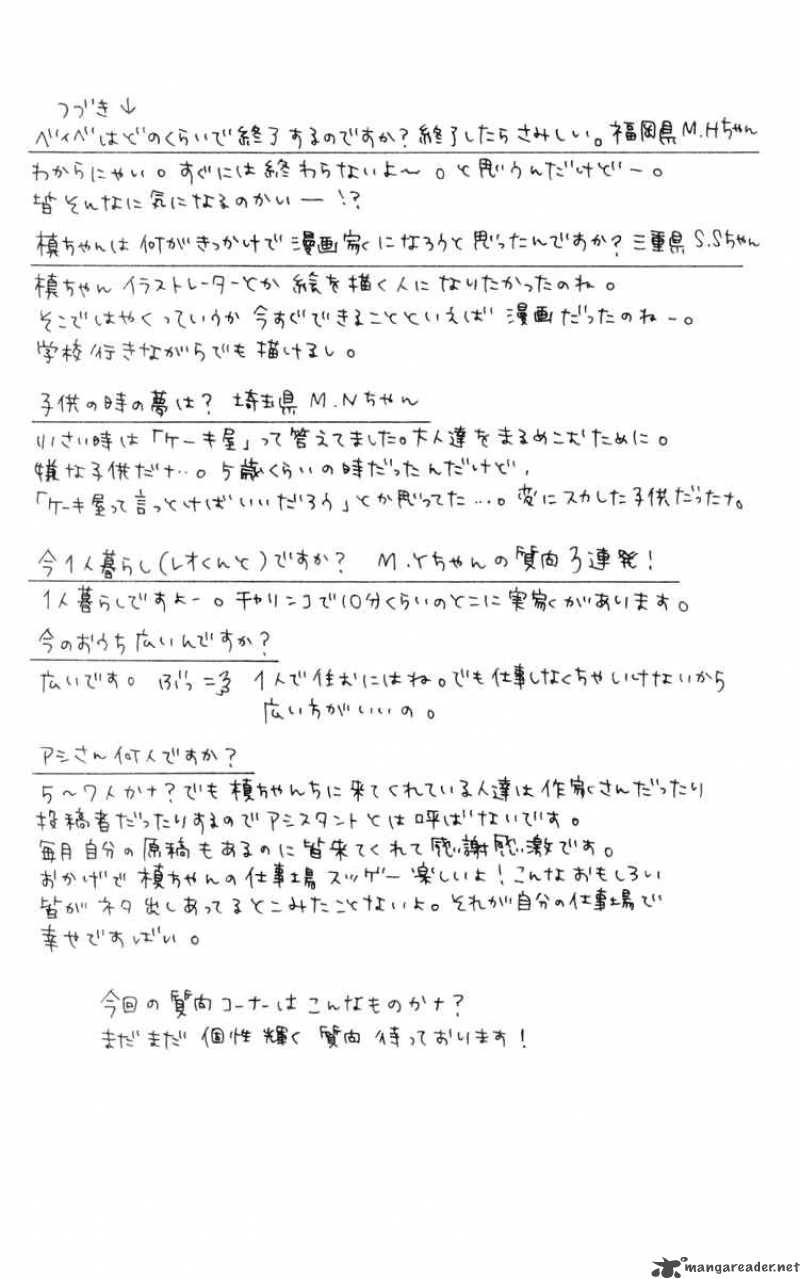 つづき↓
ベィベはどのくらいで終了するのですか?終了したらさみしい。福岡県M.Hちゃん
わからにゃい。すぐには終わらないよ〜。と思うんだけどー。
皆そんなに気になるのかいー!?
槙ちゃんは何がきっかけで漫画家になろうと思ったんですか?三重県S.Sちゃん
槙ちゃんイラストレーターとか絵を描く人になりたかったのね。
そこではやくっていうか今すぐできることといえば漫画だったのねー。
学校行きながらでも描けるし。
子供の時の夢は? 埼玉県M.Nちゃん
小さい時は「ケーキ屋」って答えてました。大人達をまるめこむために。
嫌な子供だナ…。5歳くらいの時だったんだけど、
「ケーキ屋って言っとけばいいだろう」とか思ってた…。変にスカした子供だったナ。
今1人暮らし(レオくんと)ですか? M.Yちゃんの質問3連発!
1人暮らしですよー。チャリンコで10分くらいのとこに実家があります。
今のおうち広いんですか?
広いです。 1人で住むにはね。でも仕事しなくちゃいけないから
広い方がいいの。
アシさん何人ですか?
5〜7人かナ?でも槙ちゃんちに来てくれている人達は作家さんだったり
投稿者だったりするのでアシスタントとは呼ばないです。
毎月自分の原稿もあるのに皆来てくれて感謝感激です。
おかげで槙ちゃんの仕事場スッゲー楽しいよ!こんなおもしろい
皆がネタ出しあってるとこみたことないよ。それが自分の仕事場で
幸せですばい。
今回の質問コーナーはこんなものかナ?
まだまだ個性輝く質問待っております!
mangareader.net